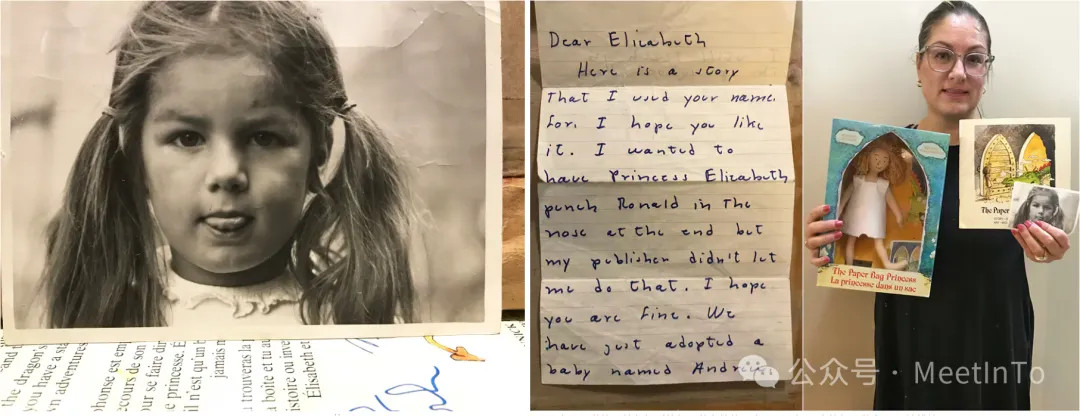 the dragon's
you have a sta
vn adventures
phose est emp
ecours de son
our se faire dir
e princesse. É
il n'est qu'un
jamais
u trouveras la
a boite et tu
istoire ou inve
Élisabeth et
Dear Elizabeth
Here is a story
that I used your name.
for. I hope you like
it. I wanted to
have Princess Elizabeth
punch Ronald in the
nose at the end but
my publisher didn't let
me do that. I hope
you are fine. We
have just adopted a
baby named
The Paper Bag Princess
La princesse dans un sac
The Paper
公众号 · MeetInTo